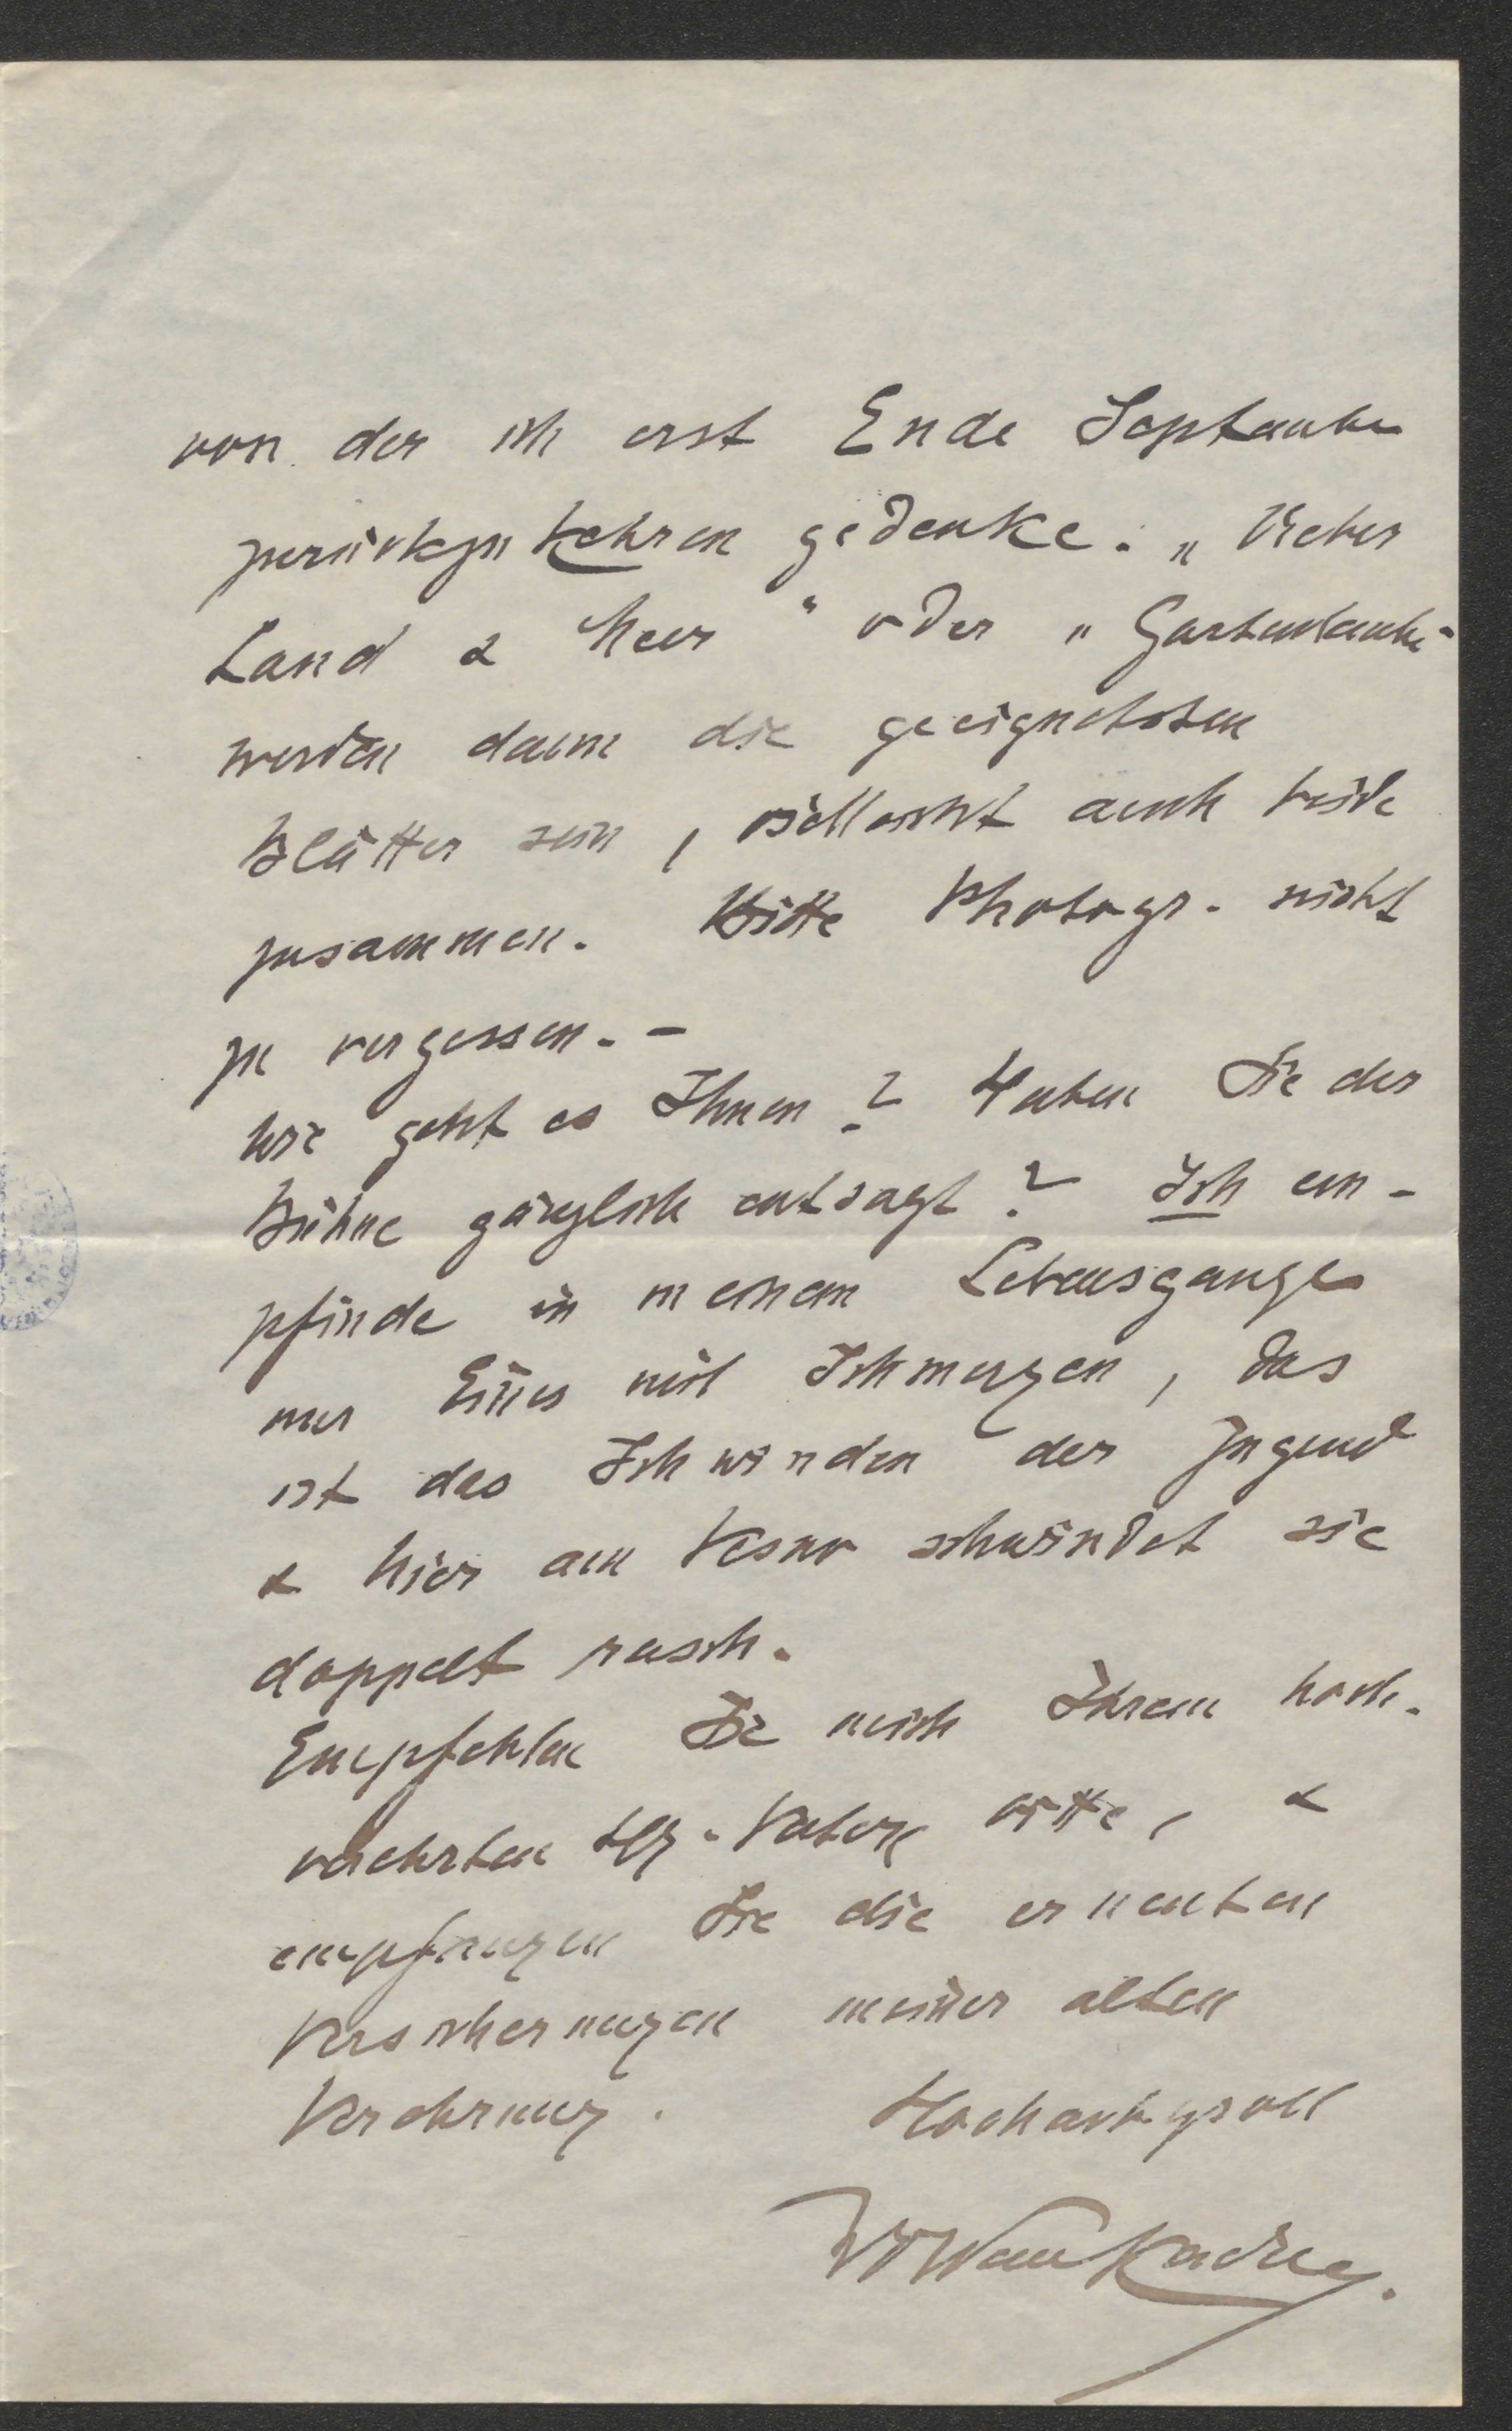 von der ich erst Ende September
zurückzukehren gedenke. „Ueber
Land & Meer" oder „Gartenlaube"
werden dann die geeignetsten
Blätter sein, vielleicht auch beide
zusammen. Bitte Photogr. nicht
zu vergessen. -
Wie geht es Ihnen? Haben Sie der
Bühne gänzlich entsagt? Ich em-
pfinde in meinem Lebensgange
nur Eines mit Schmerzen, das
ist das Schwinden der Jugend
& hier am Vesuv schwindet sie
doppelt rasch.
Empfehlen Sie mich Ihrem hoch-
verehrten Hr. Vater bitte, &
empfangen Sie die erneuten
Versicherungen meiner alten
Verehrung. Hochachtungsvoll